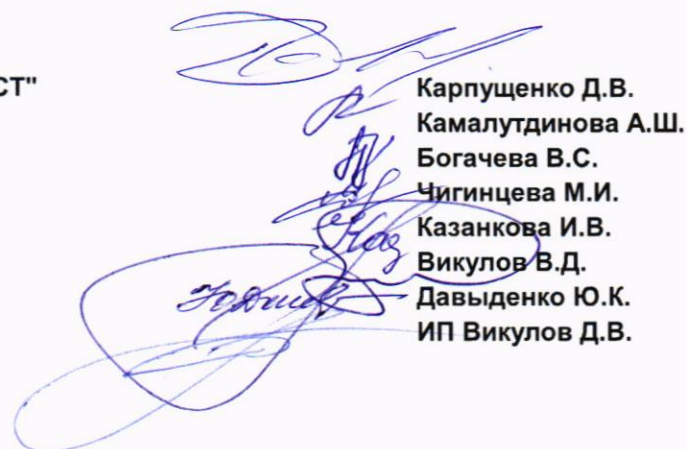 СТ"
Карпущенко Д.В.
Камалутдинова А.Ш.
Богачева В.С.
Чигинцева М.И.
Казанкова И.В.
Викулов В.Д.
Давыденко Ю.К.
ИП Викулов Д.В.